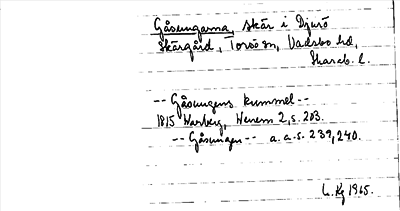 Gåsungarna, skär i Djurö
skärgård, Torsö sn, Vadsbo hd,
Skarab. l.
-- Gåsungens kummel --
1815 Warberg, Venern 2, s. 203.
-- Gåsungen -- a.a. s. 239, 240.
L. Kg 1965.